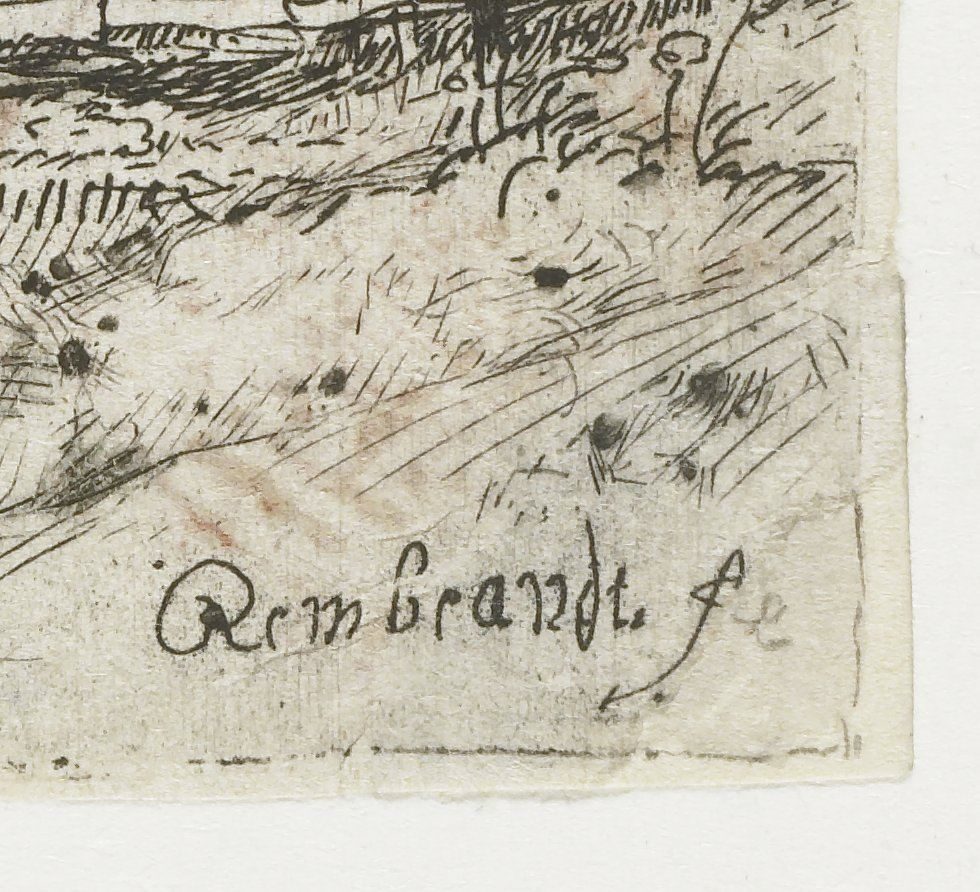 Rembrandt. fe